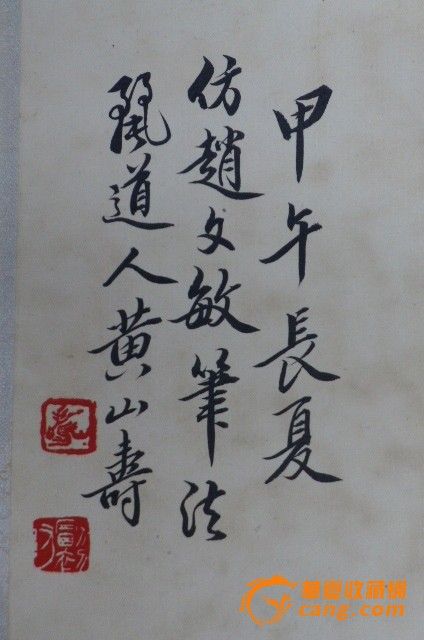 甲午長夏
仿趙文敏筆法
道人黃山壽
華夏收藏網
cang.com